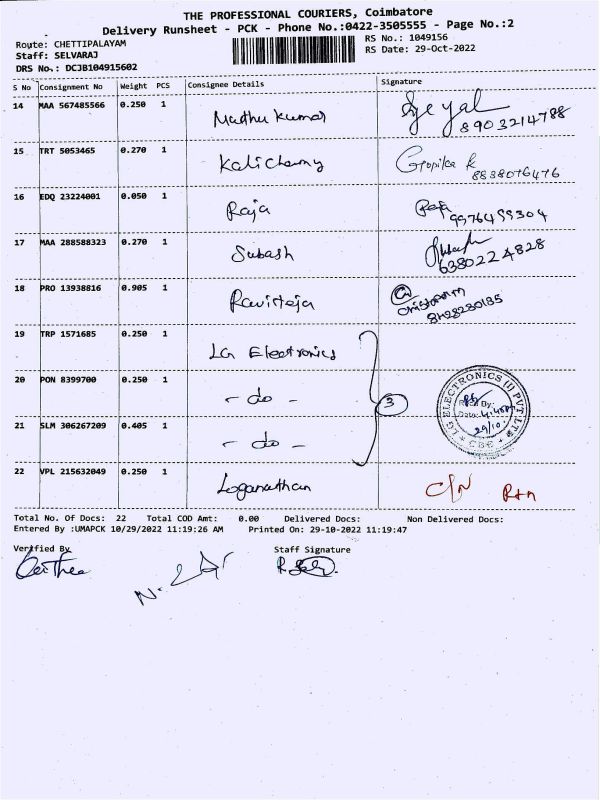 THE PROFESSIONAL COURIERS, Coimbatore
Delivery Runsheet - PCK - Phone No.:0422-3505555 - Page No.:2
Route: CHETTIPALAYAM
RS No.: 1049156
Staff: SELVARAJ
RS Date: 29-Oct-2022
DRS No.: DCJB104915602
S No Consignment No Weight PCS Consignee Details Signature
14 MAA 567485566 0.250 1 Madhu Kumar
8903214788
15 TRT 5053465 0.270 1 Kalichamy Gopika R
8838076476
16 EDQ 23224001 0.050 1 Raja Raja
9976499304
17 MAA 288588323 0.270 1 Subash
6380224828
18 PRO 13938816 0.905 1 Raviteja
8428230185
19 TRP 1571685 0.250 1 LG Electronics
20 PON 8399700 0.250 1 - do - 3
21 SLM 306267209 0.405 1 - do -
LG ELECTRONICS (I) PVT LTD
Date:
29/10
CBE
22 VPL 215632049 0.250 1 Loganathan C/N Rtn
Total No. Of Docs: 22 Total COD Amt: 0.00 Delivered Docs: Non Delivered Docs:
Entered By :UMAPCK 10/29/2022 11:19:26 AM Printed On: 29-10-2022 11:19:47
Verified By Staff Signature